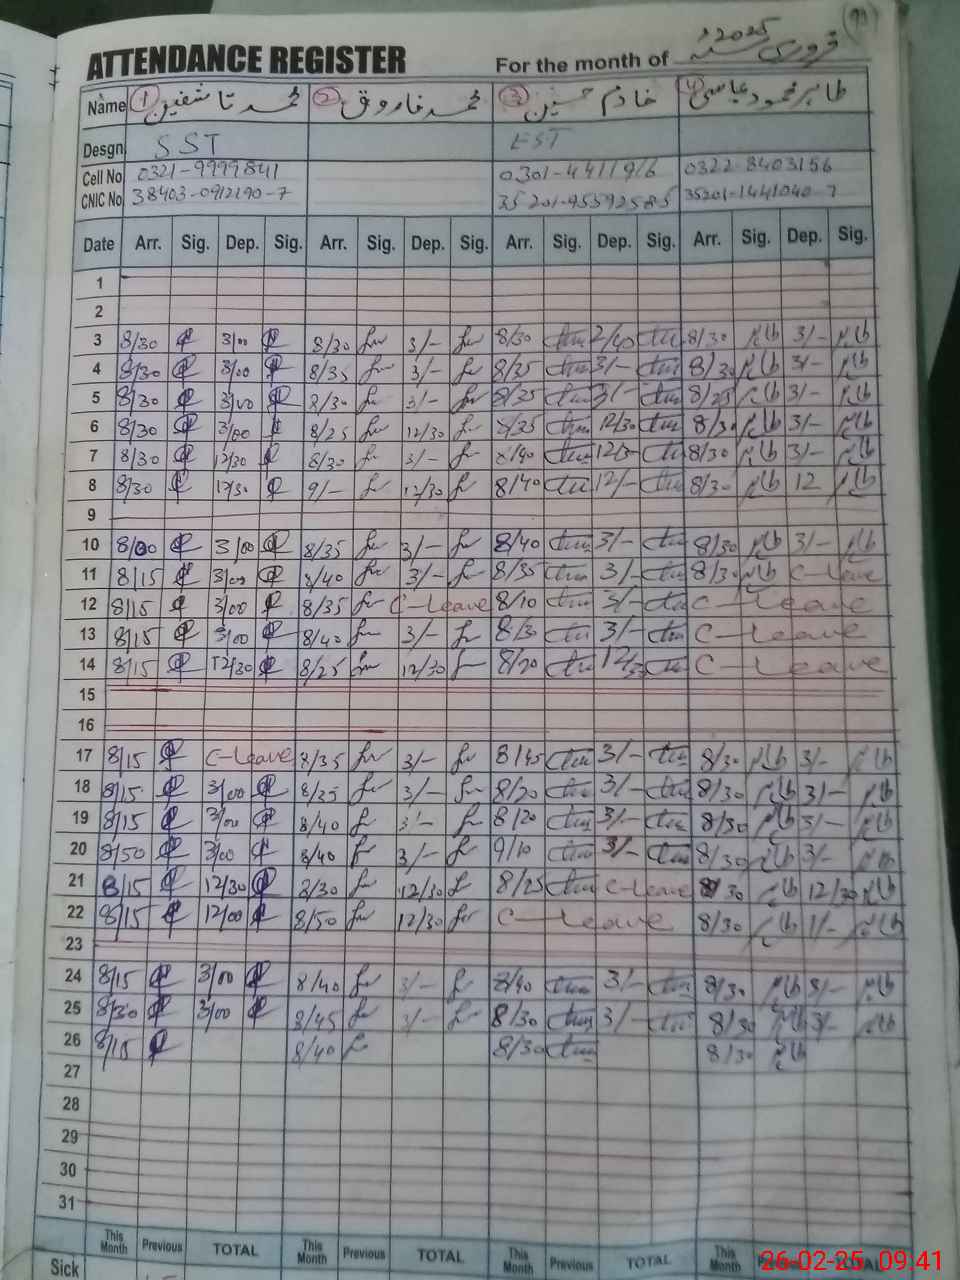 91
ATTENDANCE REGISTER For the month of فروری 2025ء
Name ① محمد تاشفین ② محمد فاروق ③ خادم حسین ④ طاہر محمود عباسی
Desgn SST EST
Cell No 0321-9999841 0301-4411916 0322-8403156
CNIC No 38403-0912190-7 35201-9559258-5 35201-1441040-7
Date Arr. Sig. Dep. Sig. Arr. Sig. Dep. Sig. Arr. Sig. Dep. Sig. Arr. Sig. Dep. Sig.
1
2
3 8/30 3/00 8/30 3/- 8/30 2/40 8/30 طاہر 3/- طاہر
4 8/30 3/00 8/35 3/- 8/35 3/- 8/30 طاہر 3/- طاہر
5 8/30 3/00 8/30 3/- 8/35 3/- 8/25 طاہر 3/- طاہر
6 8/30 3/00 8/25 12/30 8/35 12/30 8/30 طاہر 3/- طاہر
7 8/30 12/30 8/30 3/- 8/40 8/30 طاہر 3/- طاہر
8 8/30 12/30 9/- 12/30 8/40 12/- 8/30 طاہر 12 طاہر
9
10 8/00 3/00 8/35 3/- 8/40 3/- 8/30 طاہر 3/- طاہر
11 8/15 3/00 8/40 3/- 8/35 3/- 8/30 طاہر C-Leave
12 8/15 3/00 8/35 C-Leave 8/10 3/- C-Leave
13 8/15 3/00 8/40 3/- 8/30 3/- C-Leave
14 8/15 12/30 8/25 12/30 8/20 C-Leave
15
16
17 8/15 C-Leave 8/35 3/- 8/45 3/- 8/30 طاہر 3/- طاہر
18 8/15 3/00 8/35 3/- 8/20 3/- 8/30 طاہر 3/- طاہر
19 8/15 3/00 8/40 3/- 8/20 3/- 8/30 طاہر 3/- طاہر
20 8/50 3/00 8/40 3/- 9/10 3/- 8/30 طاہر 3/- طاہر
21 8/15 12/30 8/30 12/30 8/25 C-Leave 8/30 طاہر 12/30 طاہر
22 8/15 12/00 8/50 12/30 C-Leave 8/30 طاہر 1/- طاہر
23
24 8/15 3/00 8/40 3/- 8/40 3/- 8/30 طاہر 3/- طاہر
25 8/30 3/00 8/45 3/- 8/30 3/- 8/30 طاہر 3/- طاہر
26 8/15 8/40 8/30 8/30 طاہر
27
28
29
30
31
This Month Previous TOTAL This Month Previous TOTAL This Month Previous TOTAL This Month TOTAL
Sick
26-02-25 09:41